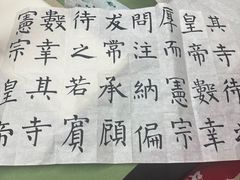 憲宗皇帝
數幸其寺
待之若賓
友常承顧
問注納偏
厚而憲宗
皇帝數幸
其寺待